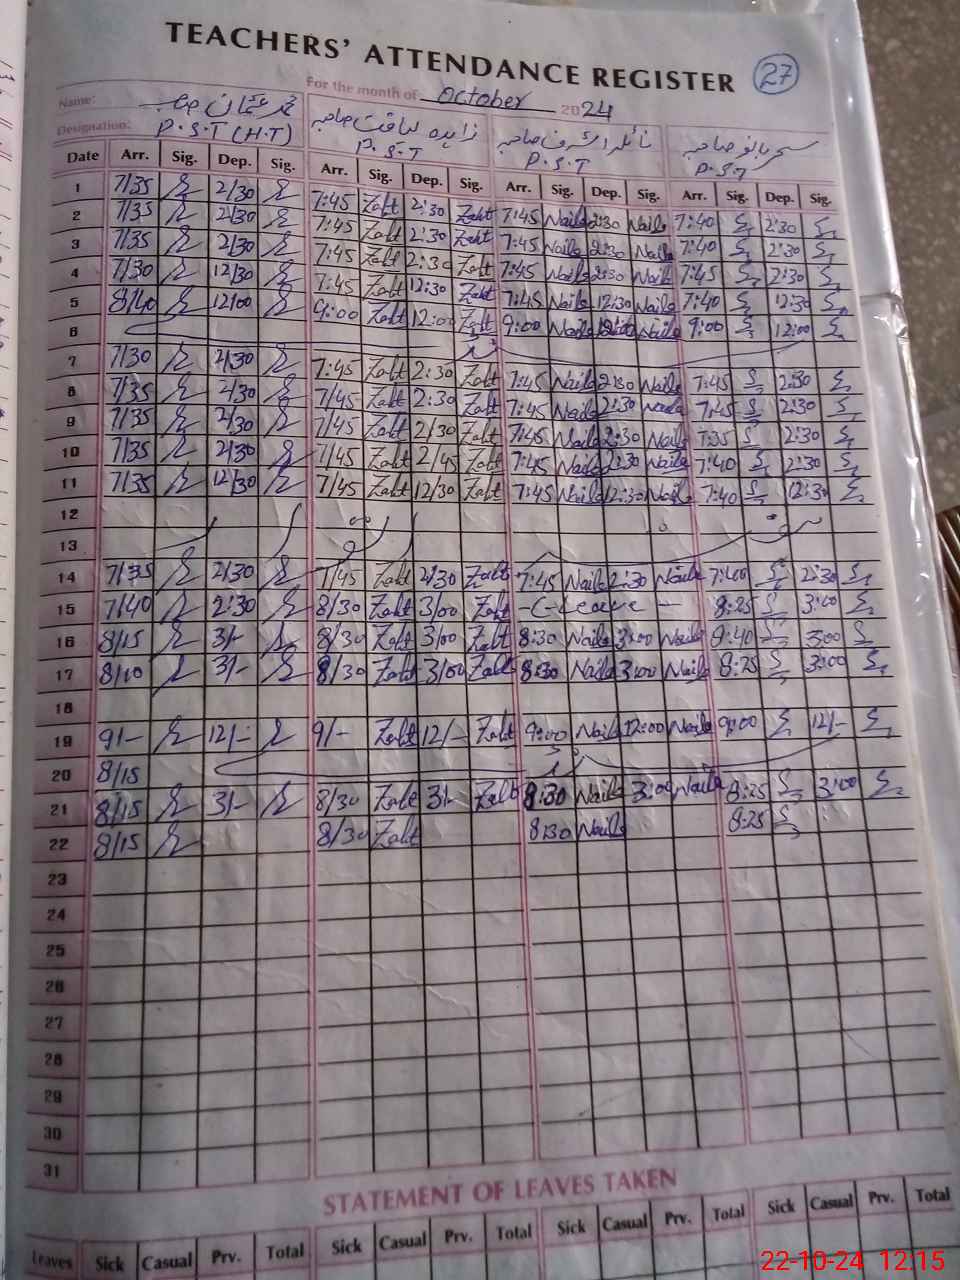 TEACHERS' ATTENDANCE REGISTER 27
For the month of October 2024
Name: محمد عثمان صاحب زاہدہ لیاقت صاحبہ نائلہ اشرف صاحبہ سحر بانو صاحبہ
Designation: P.S.T (H.T) P.S.T P.S.T P.S.T
Date Arr. Sig. Dep. Sig. Arr. Sig. Dep. Sig. Arr. Sig. Dep. Sig. Arr. Sig. Dep. Sig.
1 7/35 2/30 7:45 Zaht 2:30 Zaht 7:45 Naila 2:30 Naila 7:40 2:30
2 7/35 2/30 7:45 Zaht 2:30 Zaht 7:45 Naila 2:30 Naila 7:40 2:30
3 7/35 2/30 7:45 Zaht 2:30 Zaht 7:45 Naila 2:30 Naila 7:45 2:30
4 7/30 12/30 7:45 Zaht 12:30 Zaht 7:45 Naila 12:30 Naila 7:40 12:30
5 8/40 12/00 9:00 Zaht 12:00 Zaht 9:00 Naila 12:00 Naila 9:00 12:00
6
7 7/30 2/30 7:45 Zaht 2:30 Zaht 7:45 Naila 2:30 Naila 7:45 2:30
8 7/35 2/30 7/45 Zaht 2:30 Zaht 7:45 Naila 2:30 Naila 7:45 2:30
9 7/35 2/30 7/45 Zaht 2/30 Zaht 7:45 Naila 2:30 Naila 7:35 2:30
10 7/35 2/30 7/45 Zaht 2/45 Zaht 7:45 Naila 2:30 Naila 7:40 2:30
11 7/35 12/30 7/45 Zaht 12/30 Zaht 7:45 Naila 12:30 Naila 7:40 12:30
12
13
14 7/35 2/30 7/45 Zaht 2/30 Zaht 7:45 Naila 2:30 Naila 7:40 2:30
15 7/40 2:30 8/30 Zaht 3/00 Zaht -C-Leave- 8:25 3:00
16 8/15 3/- 8/30 Zaht 3/00 Zaht 8:30 Naila 3:00 Naila 8:40 3:00
17 8/10 3/- 8/30 Zaht 3/00 Zaht 8:30 Naila 3:00 Naila 8:25 3:00
18
19 9/- 12/- 9/- Zaht 12/- Zaht 9:00 Naila 12:00 Naila 9:00 12/-
20 8/15
21 8/15 3/- 8/30 Zaht 3/- Zaht 8:30 Naila 3:00 Naila 8:25 3:00
22 8/15 8/30 Zaht 8:30 Naila 8:25
23
24
25
26
27
28
29
30
31
STATEMENT OF LEAVES TAKEN
Leaves Sick Casual Prv. Total Sick Casual Prv. Total Sick Casual Prv. Total Sick Casual Prv. Total
22-10-24 12:15